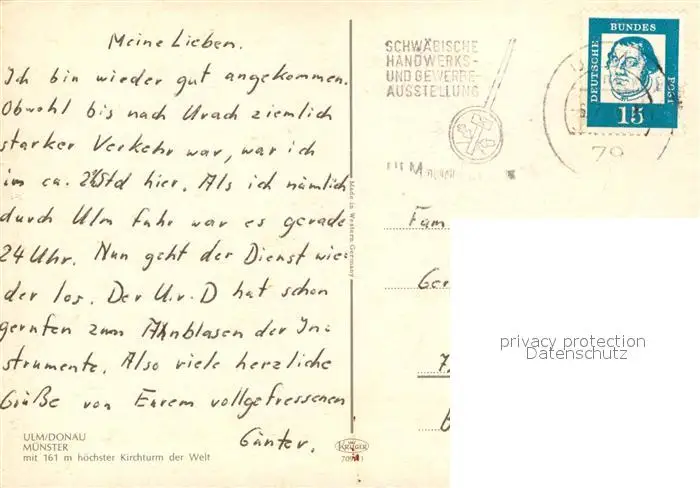 Meine Lieben.
Ich bin wieder gut angekommen.
Obwohl bis nach Urach ziemlich
starker Verkehr war, war ich
im ca. Std hier. Als ich nämlich
durch Ulm fuhr war es gerade
24 Uhr. Nun geht der Dienst wie-
der los. Der U.v.D hat schon
gerufen zum Ahnblasen der In-
strumente. Also viele herzliche
Grüße von Eurem vollgefressenen
Günter.
ULM/DONAU
MÜNSTER
mit 161 m höchster Kirchturm der Welt
Made in Western Germany
KRÜGER
SCHWÄBISCHE
HANDWERKS-
UND GEWERBE-
AUSSTELLUNG
ULM
DEUTSCHE
BUNDES
POST
15
79
Fam
Ger
privacy protection
Datenschutz